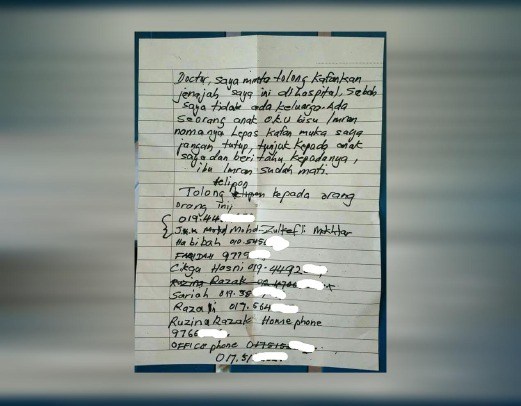 Doctor, saya minta tolong kafankan
jenajah saya ini di hospital, Sebab
saya tidak ada keluarga. Ada
seorang anak OKU bisu Imran
namanya lepas kafan muka saya
jangan tutup, tunjuk kepada anak
saya dan beri tahu kepadanya,
ibu Imran sudah mati.
telipon
Tolong kepada orang
orang ini
019.44
Mohd Zulkefli Mokhtar
Habibah 010.5454
FARIDAH 9775
Cikgu Hasni 019.4492
Ruzina Razak
Sariah 019.58
Razali 017.564
Ruzina Razak Homephone
9766
OFFice phone
017.51